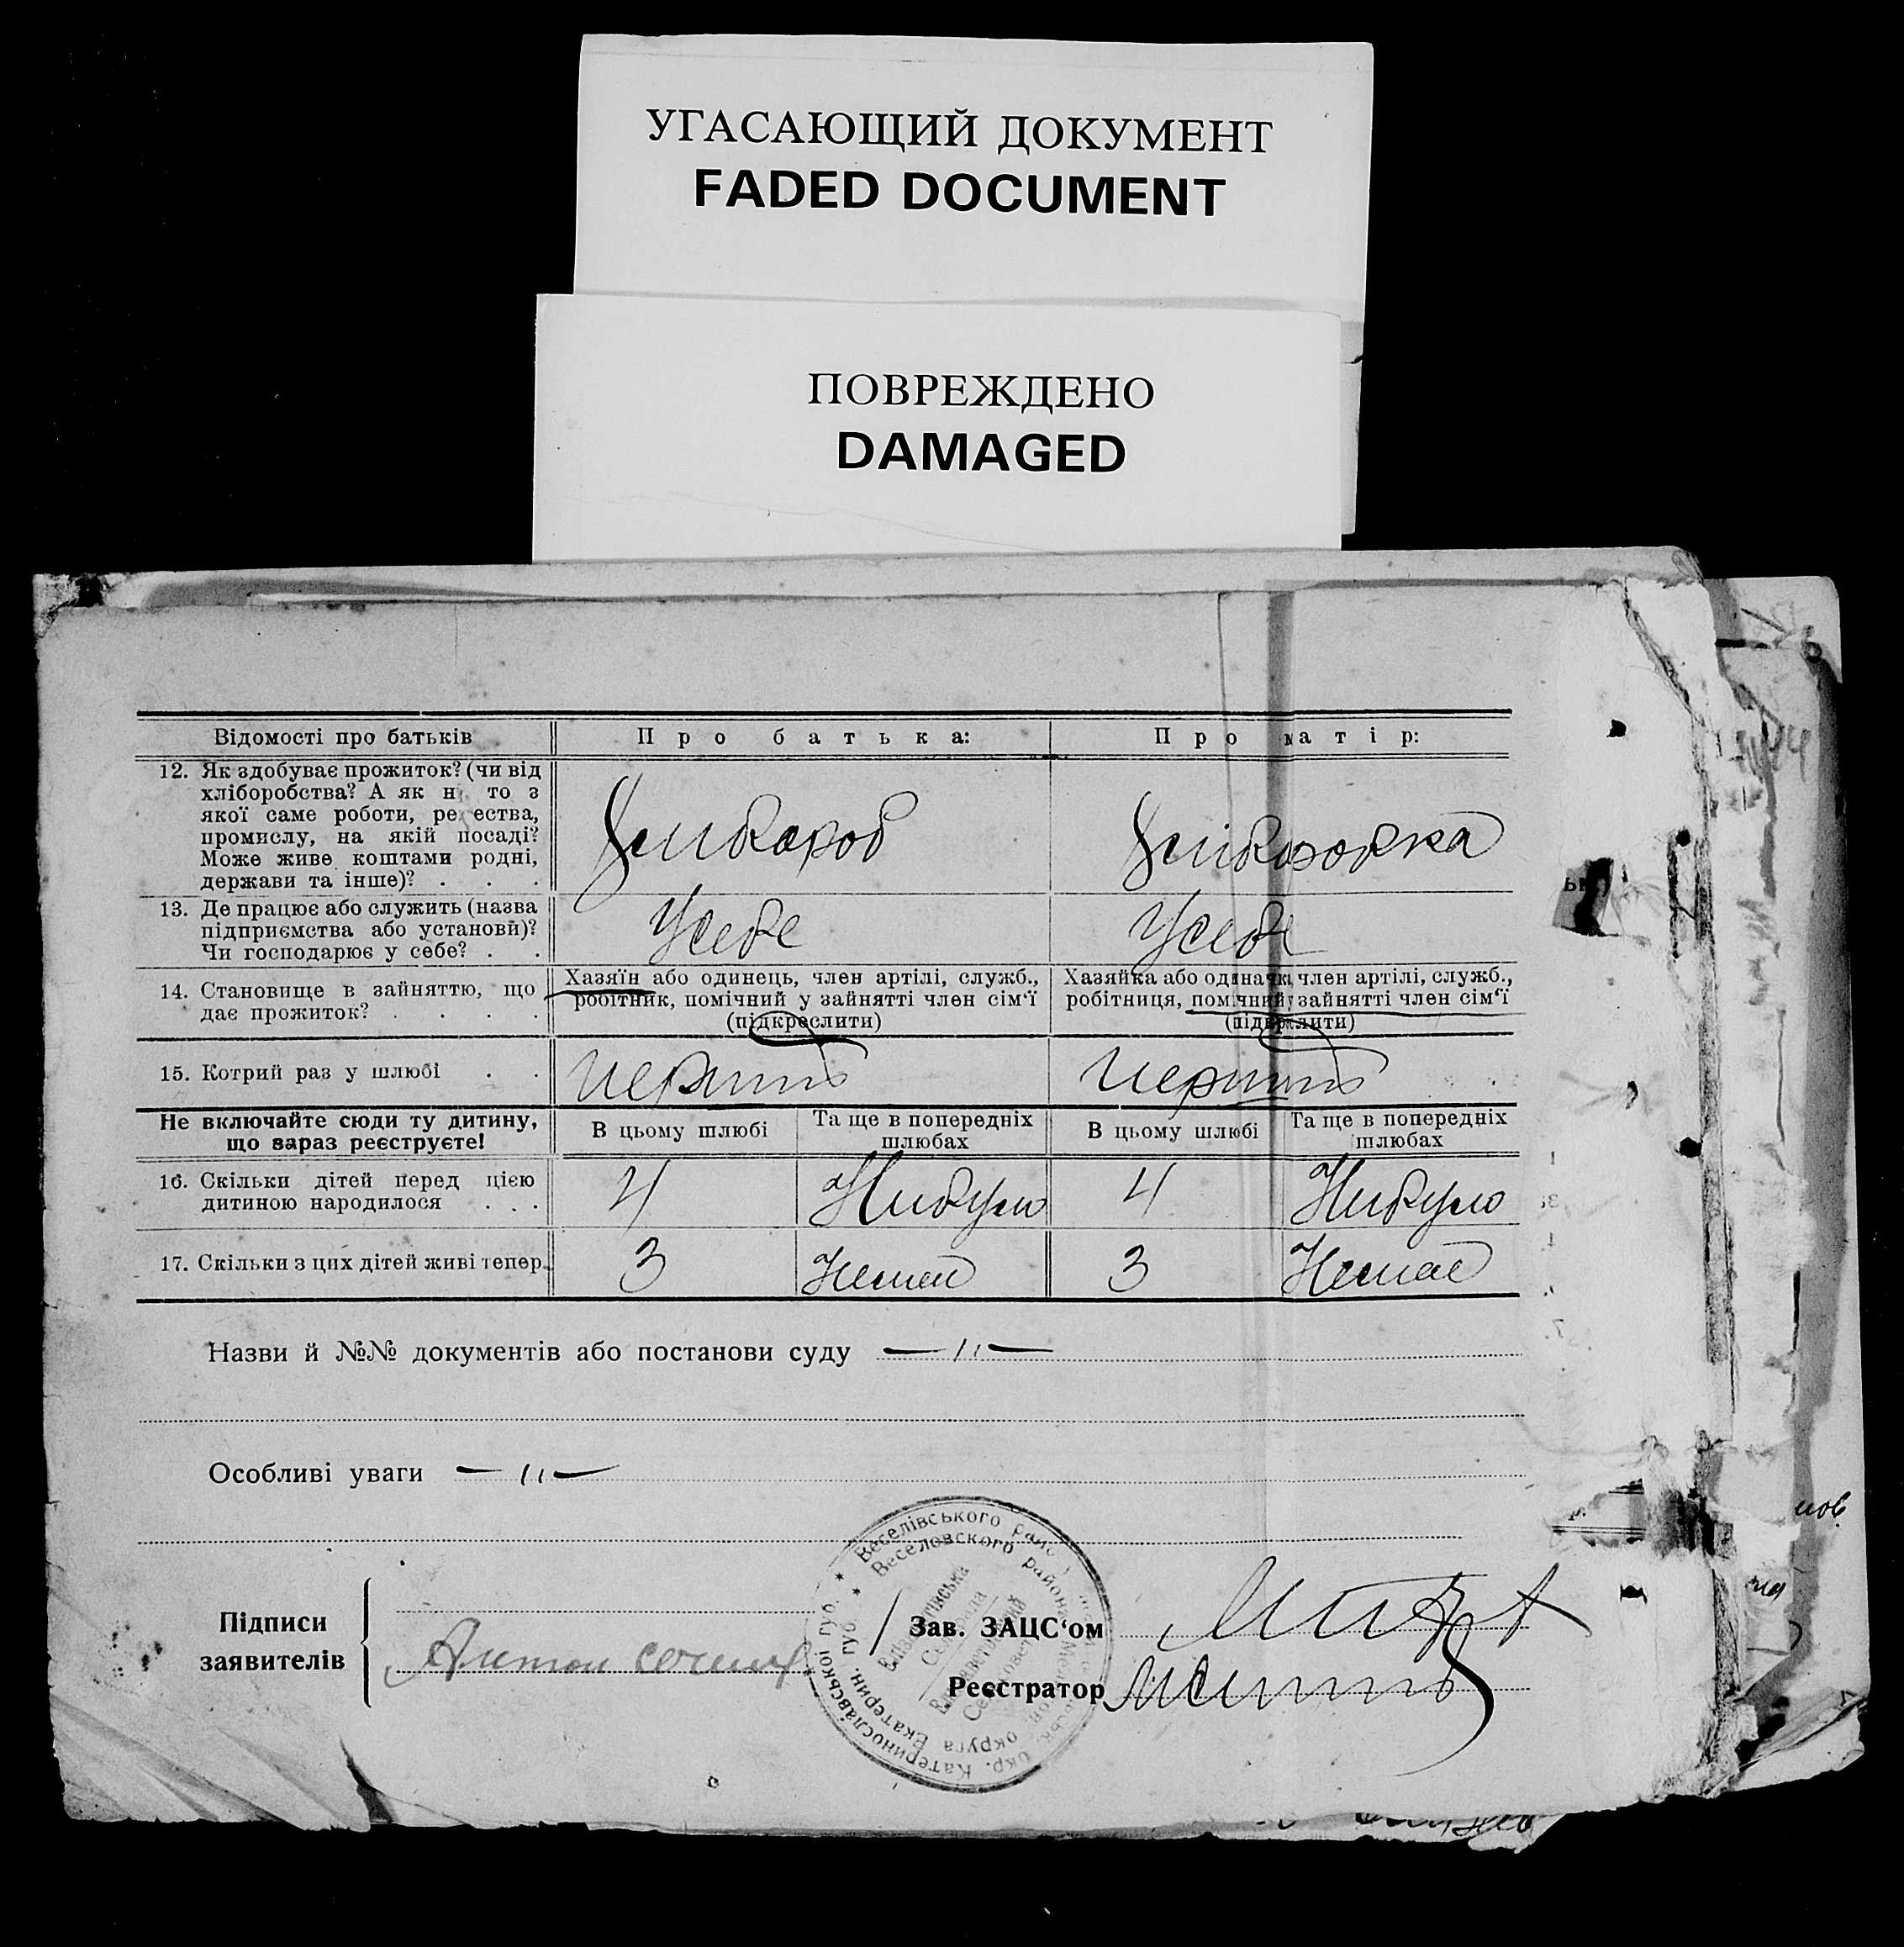 УГАСАЮЩИЙ ДОКУМЕНТ
FADED DOCUMENT
ПОВРЕЖДЕНО
DAMAGED
Відомості про батьків
Про батька:
Про матір:
12. Як здобуває прожиток? (чи від
хліборобства? А як н то з
якої саме роботи, ре ества,
промислу, на якій посаді?
Може живе коштами родні,
держави та інше)? . . .
13. Де працює або служить (назва
підприємства або установи)?
Чи господарює у себе? . .
Усебе
Усебе
14. Становище в зайняттю, що
дає прожиток? . . . .
Хазяїн або одинець, член артілі, служб.,
робітник, помічний у зайнятті член сім'ї
(підкреслити)
Хазяйка або одиначка, член артілі, служб.,
робітниця, помічний у зайнятті член сім'ї
(підкреслити)
15. Котрий раз у шлюбі . .
Не включайте сюди ту дитину,
що зараз реєструєте!
В цьому шлюбі
Та ще в попередніх
шлюбах
В цьому шлюбі
Та ще в попередніх
шлюбах
16. Скільки дітей перед цією
дитиною народилося . . .
4
Нибуло
4
Нибуло
17. Скільки з цих дітей живі тепер.
3
Немае
3
Немае
Назви й №№ документів або постанови суду — '' —
Особливі уваги — '' —
Підписи
заявителів
Антон
Зав. ЗАЦС'ом
Реєстратор
Веселівського
Веселовского района
Катеринославської губ.
Екатерин. губ.
округа